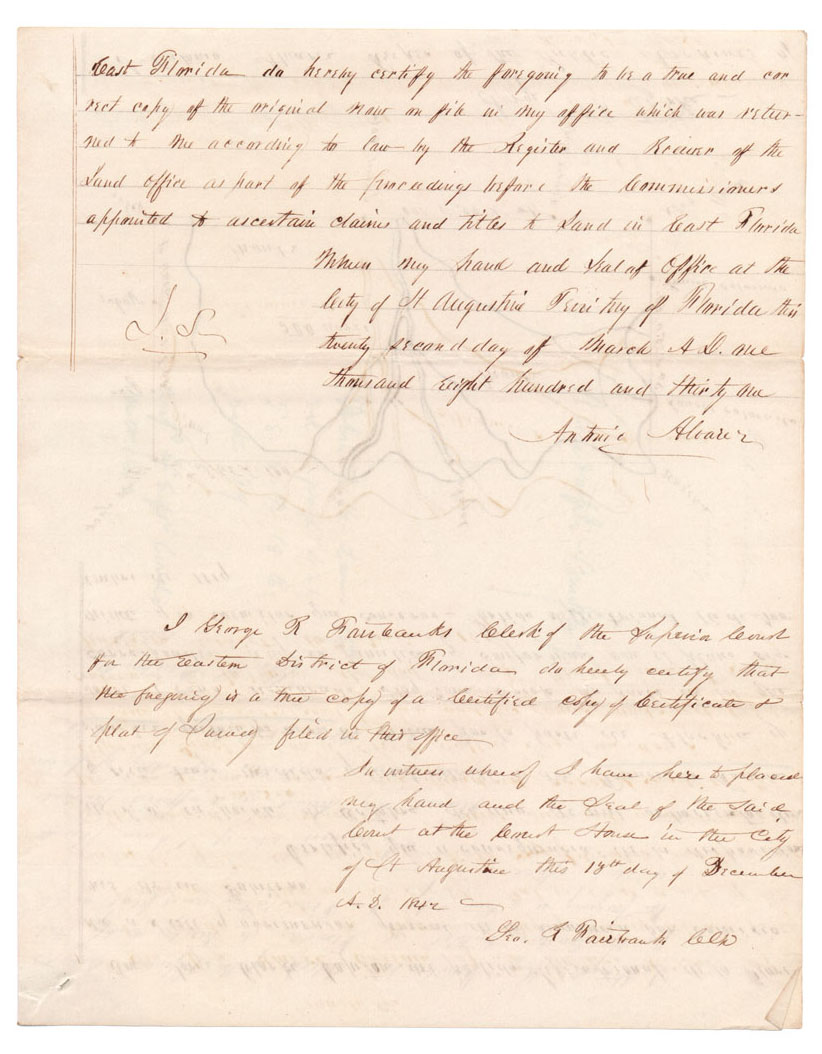 East Florida do hereby certify the foregoing to be a true and cor
rect copy of the original now on file in my office which was retur-
ned to me according to law by the Register and Receiver of the
Land Office as part of the proceedings before the Commissioners
appointed to ascertain claims and titles to Land in East Florida
my hand and Seal of Office at the
City of St Augustine Territory of Florida this
L. S.
twenty second day of March A D. one
thousand eight hundred and thirty one
Antonio Alvarez
I George R Fairbanks Clerk of the Superior Court
for the Eastern District of Florida do hereby certify that
the foregoing is a true copy of a Certified copy of Certificate &
plat of Survey filed in this office
In witness whereof I have hereto placed
my hand and the Seal of the said
Court at the Court House in the City
of St Augustine this 13th day of December
A. D. 1842
Geo. R Fairbanks Clk